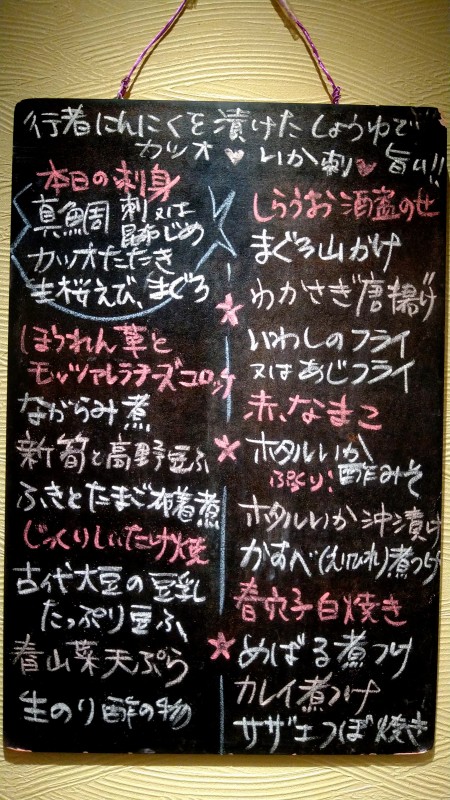 行者にんにくを漬けたしょうゆで
カツオ♥いか刺♥旨い!!
本日の刺身
真鯛 刺又は
昆布じめ
カツオたたき
生桜えび、まぐろ
ほうれん草と
モッツァレラチーズコロッケ
ながらみ煮
新筍と高野豆ふ
ふきとたまご布着煮
じっくりしいたけ焼
古代大豆の豆乳
たっぷり豆ふ
春山菜天ぷら
生のり酢の物
しらうお酒盗のせ
まぐろ山かけ
わかさぎ唐揚げ
いわしのフライ
又はあじフライ
赤なまこ
ホタルいか
ぷっくり! 酢みそ
ホタルいか沖漬け
かすべ(えいひれ)煮つけ
春穴子白焼き
めばる煮つけ
カレイ煮つけ
サザエつぼ焼き